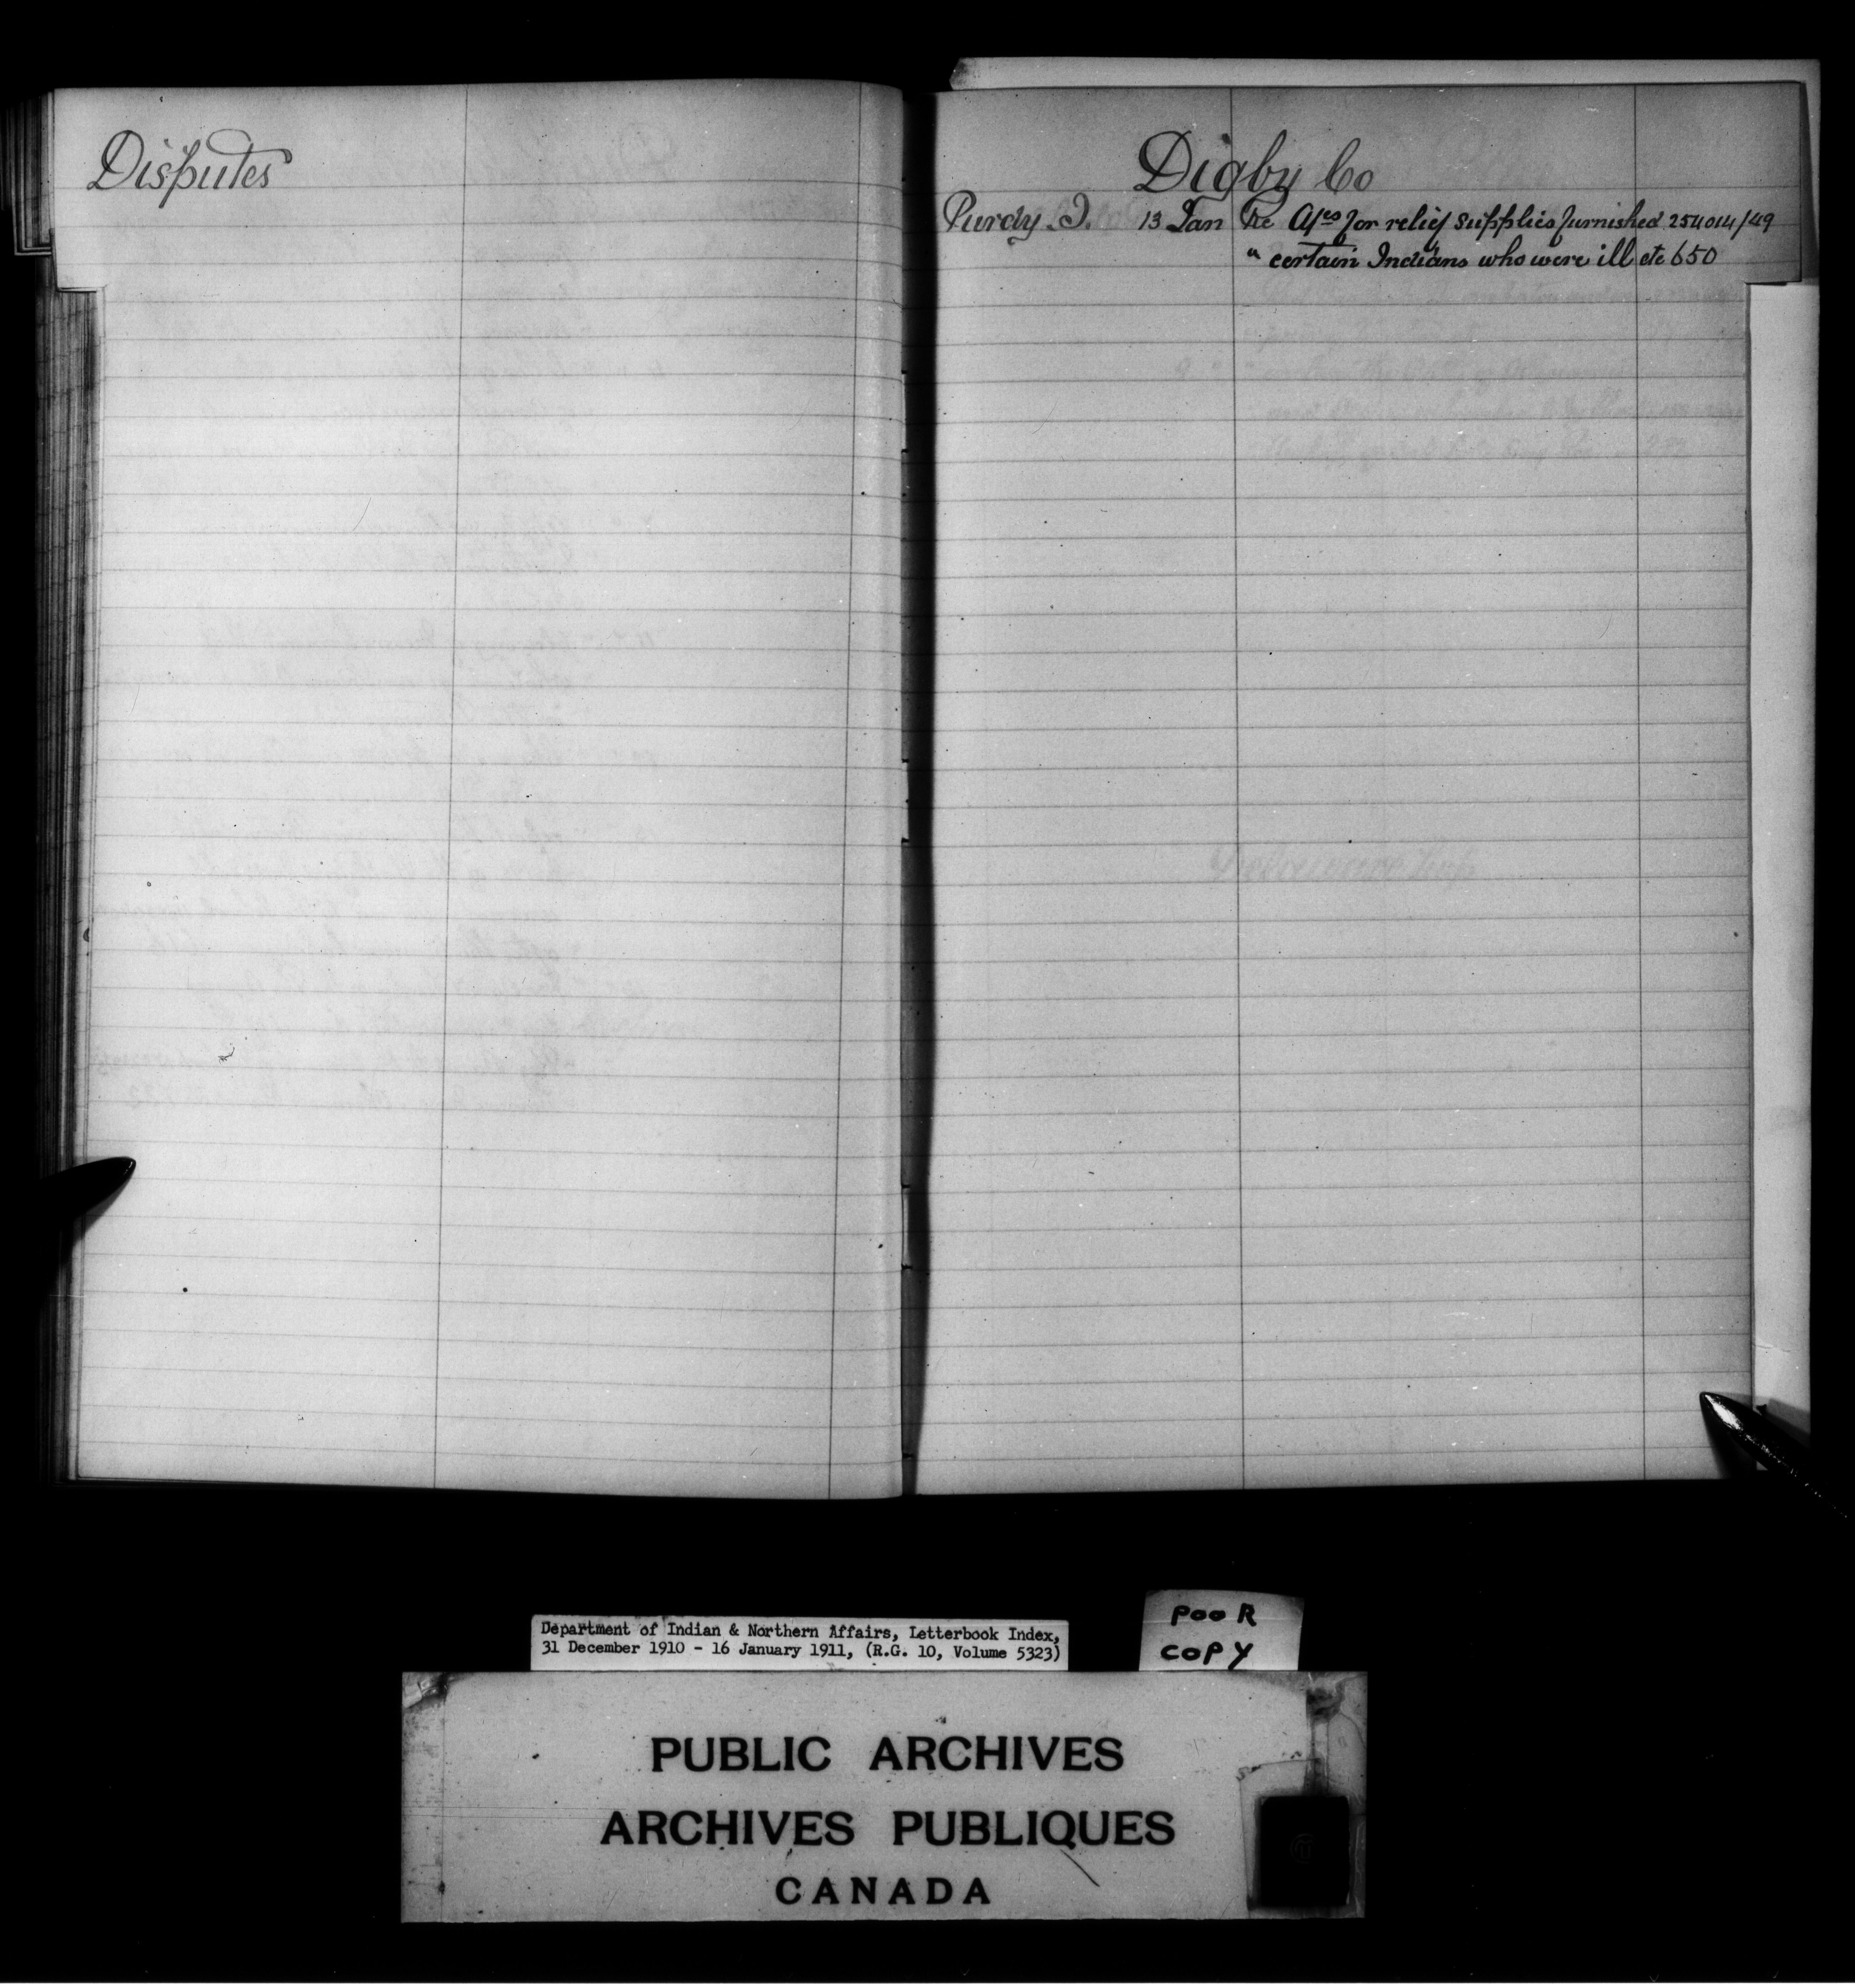 Disputes
Digby Co
Purdy J. 13 Jan Re A/cs for relief supplies furnished 254014/49
" certain Indians who were ill etc 650
Delaware Twp
Department of Indian & Northern Affairs, Letterbook Index,
31 December 1910 - 16 January 1911, (R.G. 10, Volume 5323)
POOR
COPY
PUBLIC ARCHIVES
ARCHIVES PUBLIQUES
CANADA